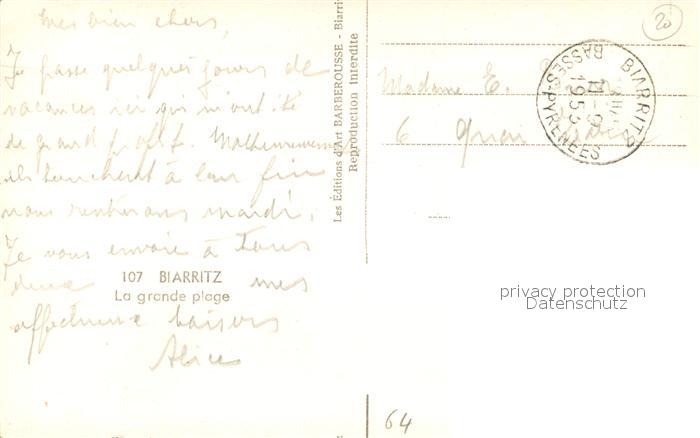 Mes bien chers,
Je passe quelques jours de
vacances ici qui m'ont été
de grand profit. Malheureusement
ils touchent à leur fin
nous rentrerons mardi.
Je vous envoie à tous
deux mes
107 BIARRITZ
La grande plage
affectueux baisers
Alice
Les Éditions d'Art BARBEROUSSE - Biarri
Reproduction interdite
Madame E.
6 Quai
BIARRITZ
BASSES-PYRENEES
20
privacy protection
Datenschutz
64